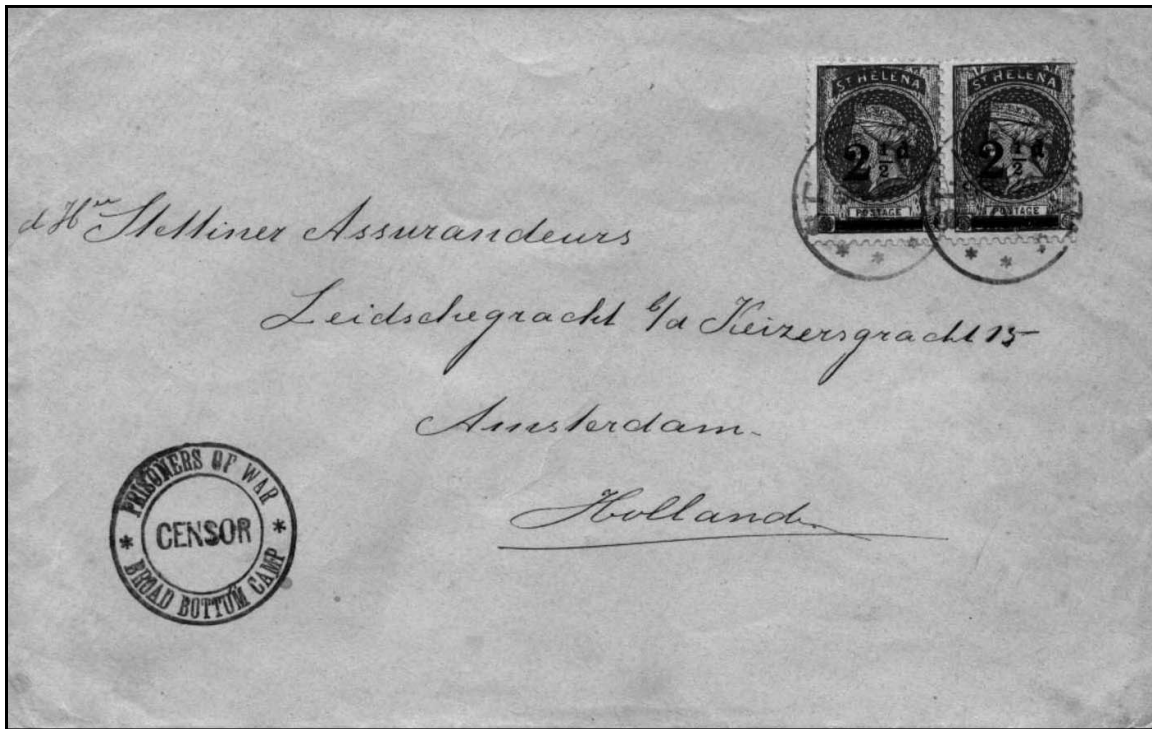 ST HELENA ST HELENA
2 ½ d 2 ½ d
POSTAGE POSTAGE
d Hrn Stettiner Assurandeurs
Leidschegracht b/d Keizersgracht 15
Amsterdam
Holland
PRISONERS OF WAR
CENSOR
BROAD BOTTUM CAMP